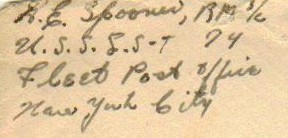 R.E. Spooner, BM 3/c
U.S.S. L.S-T 74
Fleet Post Office
New York City